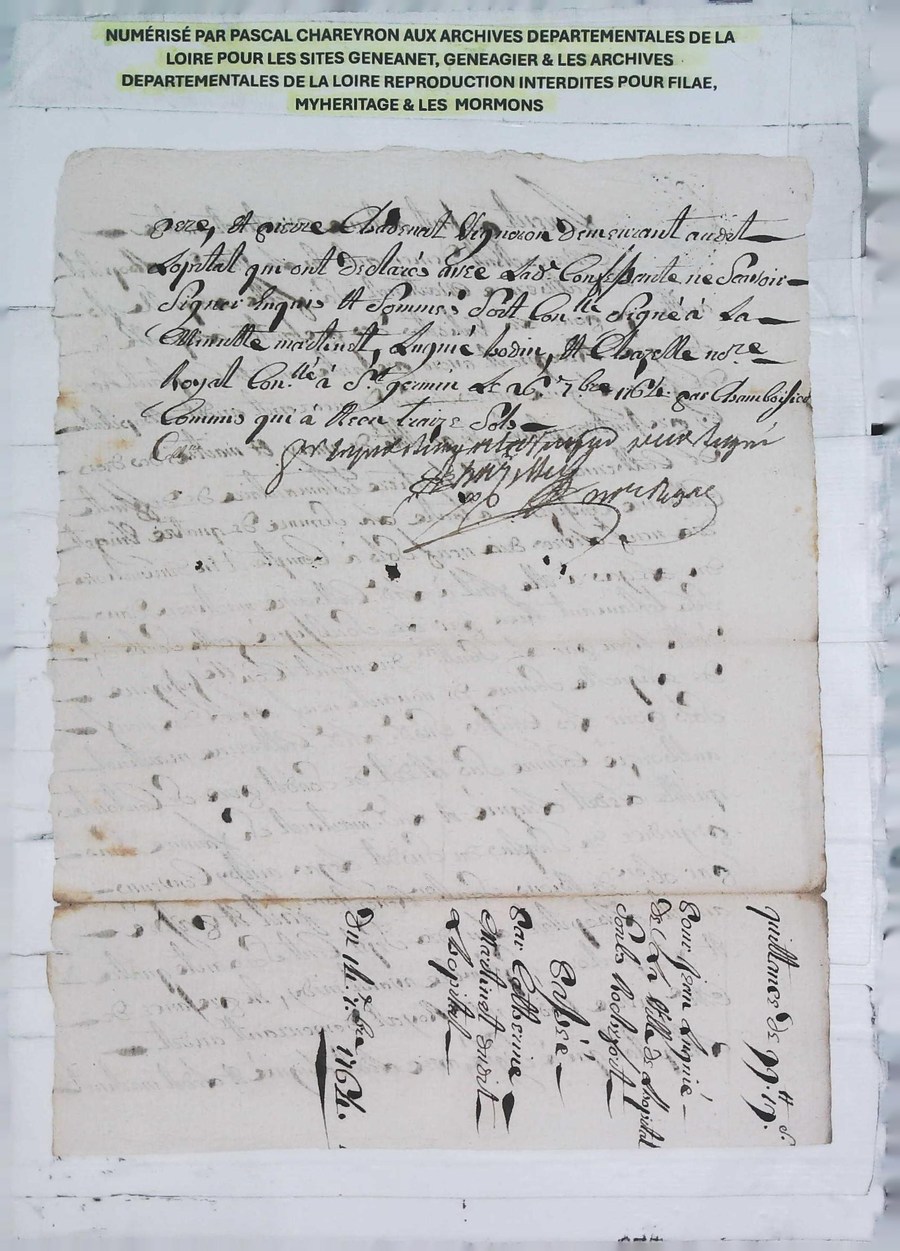 NUMÉRISÉ PAR PASCAL CHAREYRON AUX ARCHIVES DEPARTEMENTALES DE LA
LOIRE POUR LES SITES GENEANET, GENEAGIER & LES ARCHIVES
DEPARTEMENTALES DE LA LOIRE REPRODUCTION INTERDITES POUR FILAE,
MYHERITAGE & LES MORMONS
pere, et pierre Chadenat Vigneron demeurant audit
Lopital qui ont declarés avec Lad.e Confessante ne Savoir
Signer Enquis et Sommés Soit Con.llé Signé à La
Minutte martinet, Lugnié bodin, et Chazelle no.re
Royal Con.llé à S.t germin Le 26.e 7.bre 1764. par
Commis qui à Receu traize Sols
royal
quittances de 99.tt 19.s
pour sieur Lugnié
de La Ville de Lhopital
Soubs Rochefort
Passé
Par Catherine
Martinet dudit
Lhopital
du 14. 7.bre 1764.